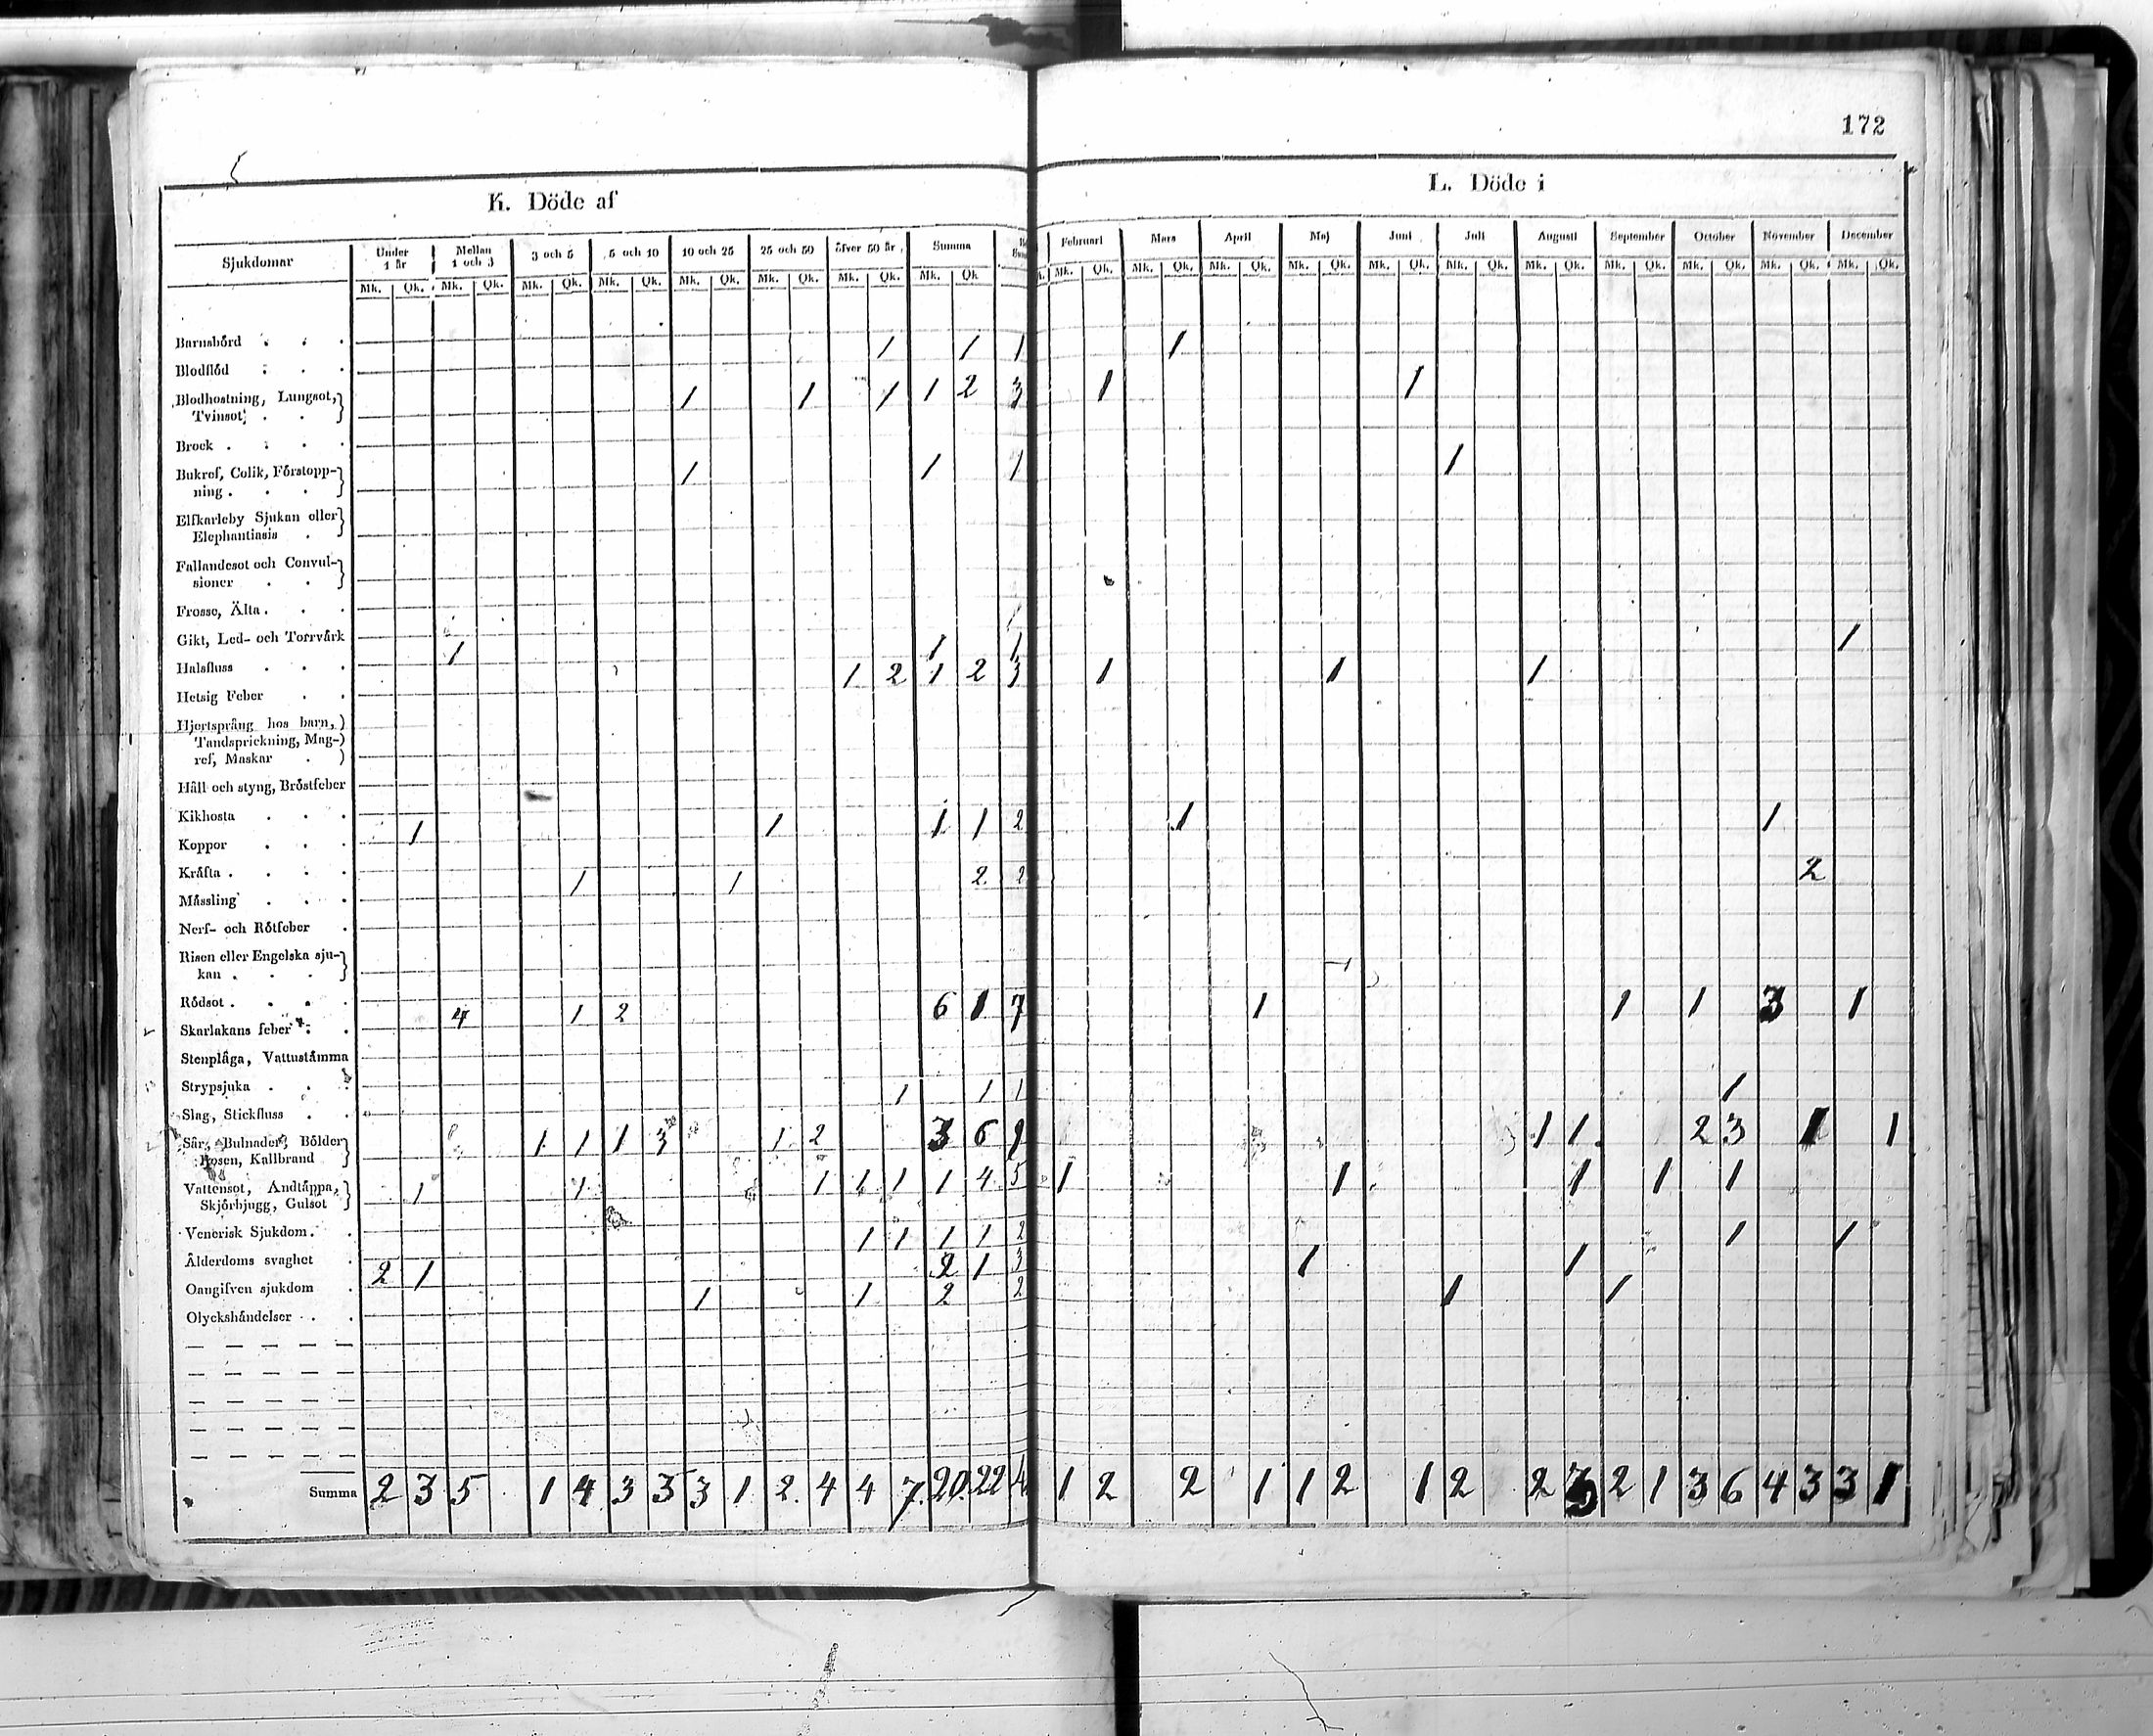 172
K. Döde af
L. Döde i
Sjukdomar Under 1 år Mellan 1 och 3 3 och 5 5 och 10 10 och 25 25 och 50 öfver 50 år Summa
Februari Mars April Maj Juni Juli Augusti September October November December
Mk. Qk. Mk. Qk. Mk. Qk. Mk. Qk. Mk. Qk. Mk. Qk. Mk. Qk. Mk. Qk
Mk. Qk. Mk. Qk. Mk. Qk. Mk. Qk. Mk. Qk. Mk. Qk. Mk. Qk. Mk. Qk. Mk. Qk. Mk. Qk. Mk. Qk.
Barnsbörd . . . 1 1 1 1
Blodflöd . . .
Blodhostning, Lungsot, 1 1 1 1 2 3 1 1
Tvinsot, . .
Brock . . . .
Bukref, Colik, Förstopp- 1 1 1 1
ning . . .
Elfkarleby Sjukan eller
Elephantiasis .
Fallandesot och Convul-
sioner . .
Frossa, Älta . . .
Gikt, Led- och Torrvärk 1 1 1 1
Halsfluss . . . 1 2 1 2 3 1 1 1
Hetsig Feber . .
Hjertsprång hos barn,
Tandsprickning, Mag-
ref, Maskar .
Håll och styng, Bröstfeber
Kikhosta . . . 1 1 1 1 2 1 1
Koppor . . .
Kräfta . . . . 1 1 2 2 2
Mässling . . .
Nerf- och Rötfeber .
Risen eller Engelska sju-
kan . . .
Rödsot . . . . 4 1 2 6 1 7 1 1 1 3 1
Skarlakans feber . .
Stenplåga, Vattustämma
Strypsjuka . . . 1 1 1 1
Slag, Stickfluss . .
Sår, Bulnader, Bölder 1 1 1 3 1 2 3 6 9 1 1 2 3 1 1
Rosen, Kallbrand
Vattensot, Andtäppa, 1 1 1 1 1 1 4 5 1 1 1 1 1
Skjörbjugg, Gulsot
Venerisk Sjukdom . . 1 1 1 1 2 1 1
Ålderdoms svaghet . 2 1 2 1 3 1 1
Oangifven sjukdom . 1 1 2 2 1 1
Olyckshändelser . .
Summa 2 3 5 1 4 3 3 3 1 2 4 4 7 20 22 4 1 2 2 1 1 2 1 2 2 3 2 1 3 6 4 3 3 1